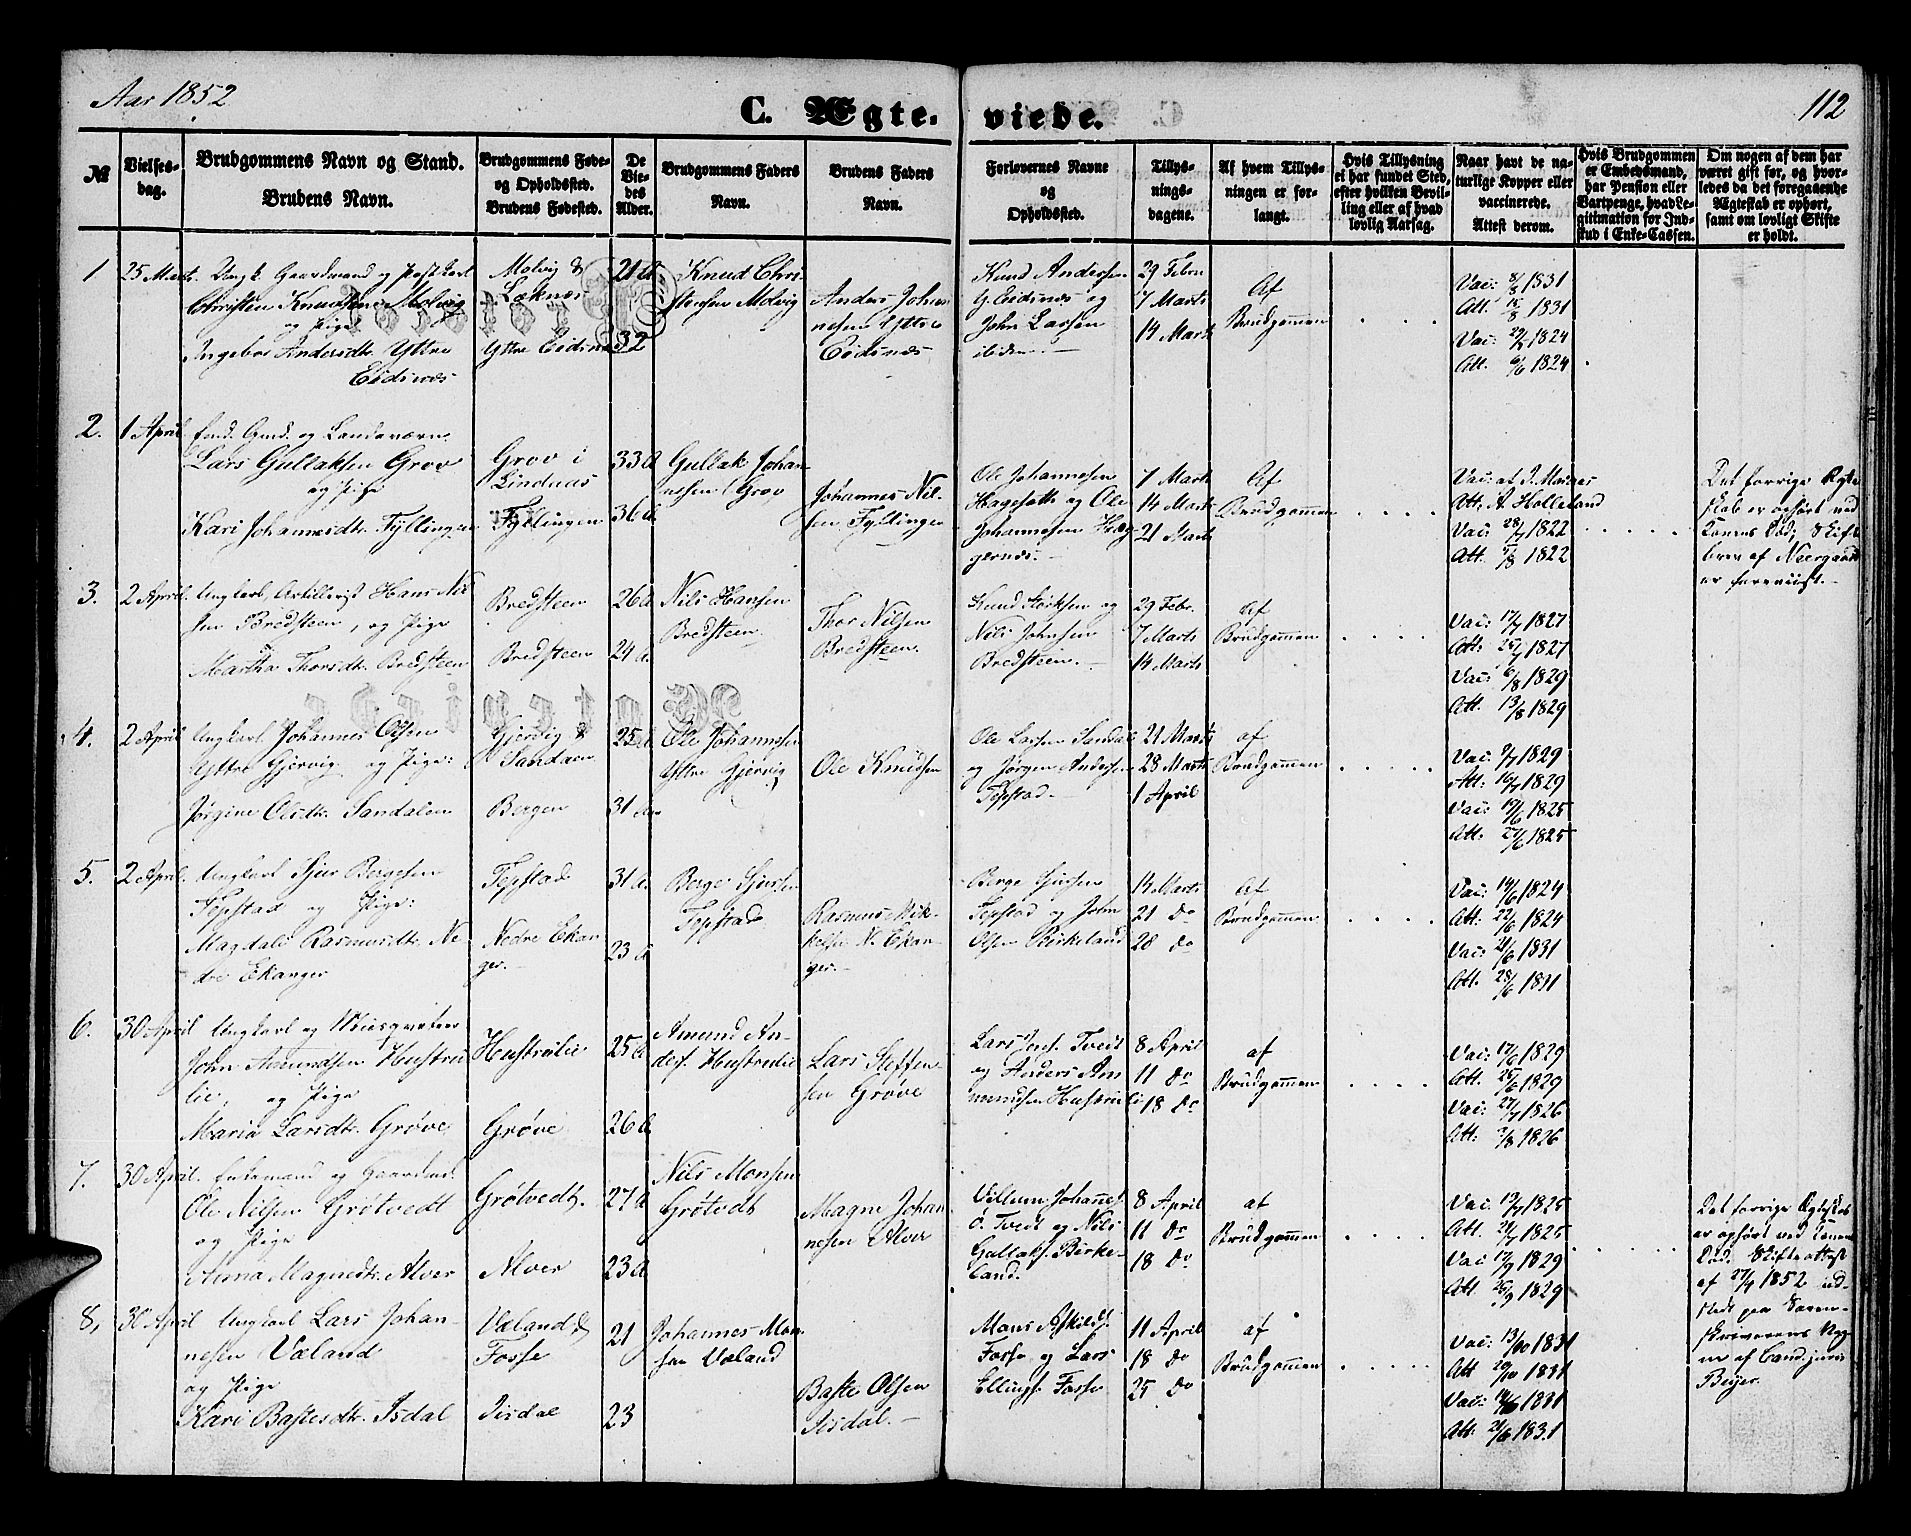 Aar 1852
C. Ægte- viede.
112
№
Vielses-
dag.
Brudgommens Navn og Stand.
Brudens Navn.
Brudgommens Føde-
og Opholdssted.
Brudens Fødested.
De
Vie-
des
Alder.
Brudgommens Faders
Navn.
Brudens Faders
Navn.
Forlovernes Navne
og
Opholdssted.
Tillys-
nings-
dagene.
Af hvem Tillys-
ningen er for-
langt.
Hvis Tillysning
ei har fundet Sted,
efter hvilken Bevil-
ling eller af hvad
lovlig Aarsag.
Naar havt de na-
turlige Kopper eller
vaccinerede.
Attest derom.
Hvis Brudgommen
er Embedsmand,
har Pension eller
Vartpenge, hvad Le-
gitimation for Ind-
skud i Enke-Cassen.
Om nogen af dem har
været gift før, og hvor-
ledes da det foregaaende
Ægteskab er ophørt,
samt om lovligt Skifte
er holdt.
1
25 Marts.
Ungk. Gaardmand og
Christen Knudsen Molvig
og Pige
Ingebor Andersdtr. Yttre
Eidsnæs
Molvig &
Læknæs
Yttre Eidsnæs
21 A
32
Knud Chri-
stensen Molvig
Anders Johan-
nesen Yttre
Eidsnæs
Knud Andersen
Y. Eidsnæs og
John Larsen
ibidem.
29 Febru
7 Marts
14 Marts
Af
Brudgommen
Vac: 8/8 1831
Att. 15/8 1831
Vac: 29/5 1824
Att. 6/6 1824
2.
1 April.
Enkd. Gmd. og Landeværn.
Lars Gullaksen Grov
og Pige
Kari Johannesdtr. Fyllingen
Grov i
Lindaas
Fyllingen
33 A
36 A.
Gullak Johan-
nesen Grov
Johannes Nil-
sen Fyllingen
Ole Johannesen
Hagesæth og Ole
Johannesen Hæg
gernæs.
7 Marts
14 Marts
21 Marts
Af
Brudgommen
Vac: af J. Monsen
Att. A. Holleland
Vac: 28/7 1822
Att. 5/8 1822
Det forrige Ægte
skab er ophørt ved
Konens Død; Skifte
brev af Neergaard
er foreviist.
3.
2 April.
Ungkarl, Artillerist Hans Nil
sen Bredsteen, og Pige
Martha Thorsdtr. Bredsteen
Bredsteen
Bredsteen
26 A
24 A.
Nils Hansen
Bredsteen.
Thor Nilsen
Bredsteen.
Knud Størksen og
Nils Johnsen
Bredsteen.
29 Febr.
7 Marts
14 Marts
Af
Brudgommen
Vac: 17/7 1827
Att: 25/7 1827
Vac: 6/8 1829
Att. 13/8 1829
4.
2 April
Ungkarl Johannes Olsen
Yttre Gjervig og Pige:
Jørgine Olsdtr. Sandalen
Gjervig &
Sandalen
Bergen
25 A
31 A.
Ole Johannesen
Yttre Gjervig
Ole Knudsen
Ole Larsen Sandal
og Jørgen Andersen
Fepstad.
21 Marts
28 Marts
1 April
af
Brudgommen
Vac. 9/7 1829
Att: 16/7 1829
Vac: 19/6 1825
Att: 27/6 1825
5.
2 April.
Ungkarl Sjur Bergesen
Fepstad og Pige:
Magdale Rasmusdtr. Ne-
dre Ekanger
Fepstad
Nedre Ekan
ger.
31 A.
23 A
Berge Sjursen
Fepstad
Rasmus Mik-
kelsen N. Ekan-
ger.
Berge Sjursen
Fepstad og John
Olsen Birkeland
14 Marts
21 Do
28 Do
Af
Brudgommen
Vac: 14/6 1824
Att: 22/6 1824
Vac: 21/6 1831
Att: 28/6 1831
6.
30 April
Ungkarl og
John Amundsen Hustru
lie, og Pige
Maria Larsdtr. Grøve
Hustrulie
Grøve
25 A
26 A.
Amund An-
ders. Hustrulie
Lars Steffen-
sen Grøve
Lars Tveit
og Anders Am
mundsen Hustruli
8 April
11 Do
18 Do
af
Brudgommen
Vac: 17/6 1829
Att. 25/6 1829
Vac: 27/7 1826
Att: 3/8 1826
7.
30 April.
Enkemand og Gaardmd.
Ole Nilsen Grøtvedt
og Pige
Anna Magnedtr. Alver
Grøtvedt.
Alver
27 A
23 A
Nils Monsen
Grøtvedt
Magne Johan-
nesen Alver
Villum Johannes.
Ø. Tveit og Nils
Gullaks. Birke-
land.
8 April
11 Do
18 Do
af
Brudgommen
Vac: 13/7 1825
Att. 21/7 1825
Vac 17/9 1829
Att 25/9 1829
Det forrige Ægteskab
er ophørt ved Konens
Død. Skifteattest
af 27/4 1852 ud-
stedt paa Soren-
skriverens Veg-
ne af Cand. juris
Beyer.
8,
30 April
Ungkarl Lars Johan-
nesen Væland
og Pige
Kari Bastesdtr. Isdal
Væland &
Fosse
Isdal
21
23
Johannes Mon
sen Væland
Baste Olsen
Isdal.
Mons Askilds.
Fosse og Lars
Ellings. Fosse
11 April
18 Do
25 Do
af
Brudgommen
Vac: 13/10 1831
Att 20/10 1831
Vac: 14/6 1831
Att: 21/6 1831